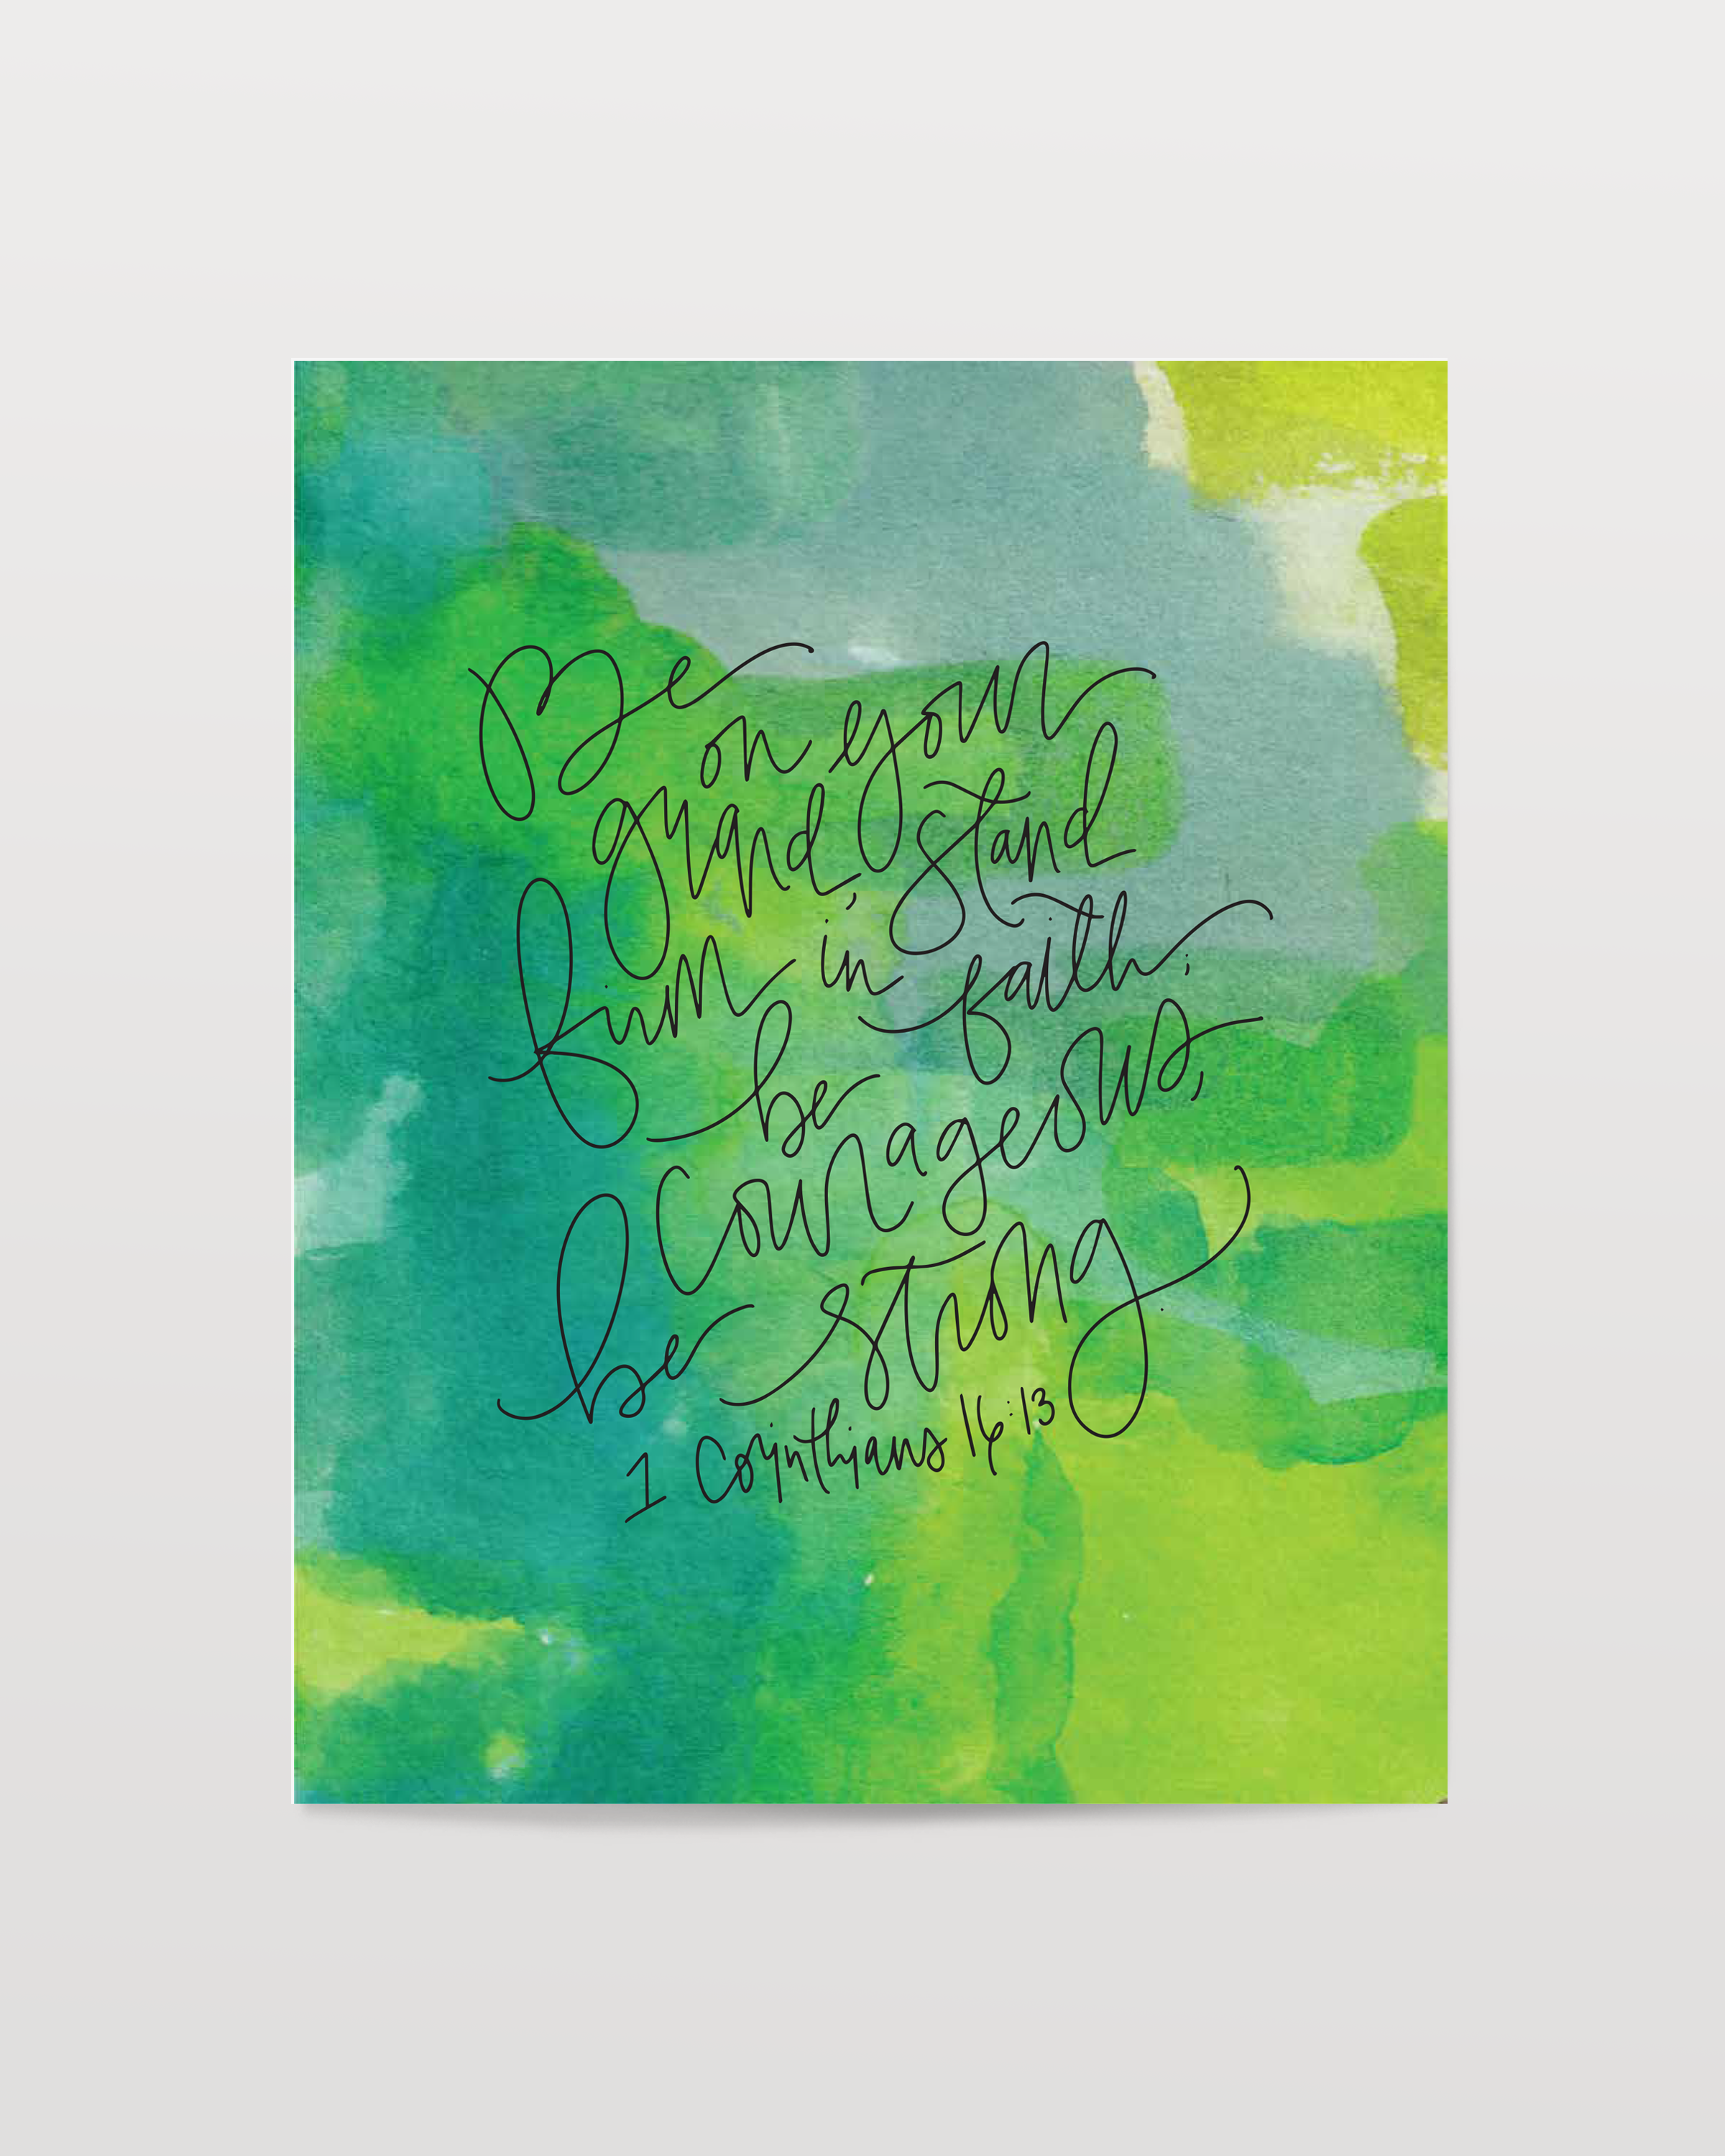 Be
on your
guard, stand
firm in faith;
be
courageous,
be strong.
1 Corinthians 16:13